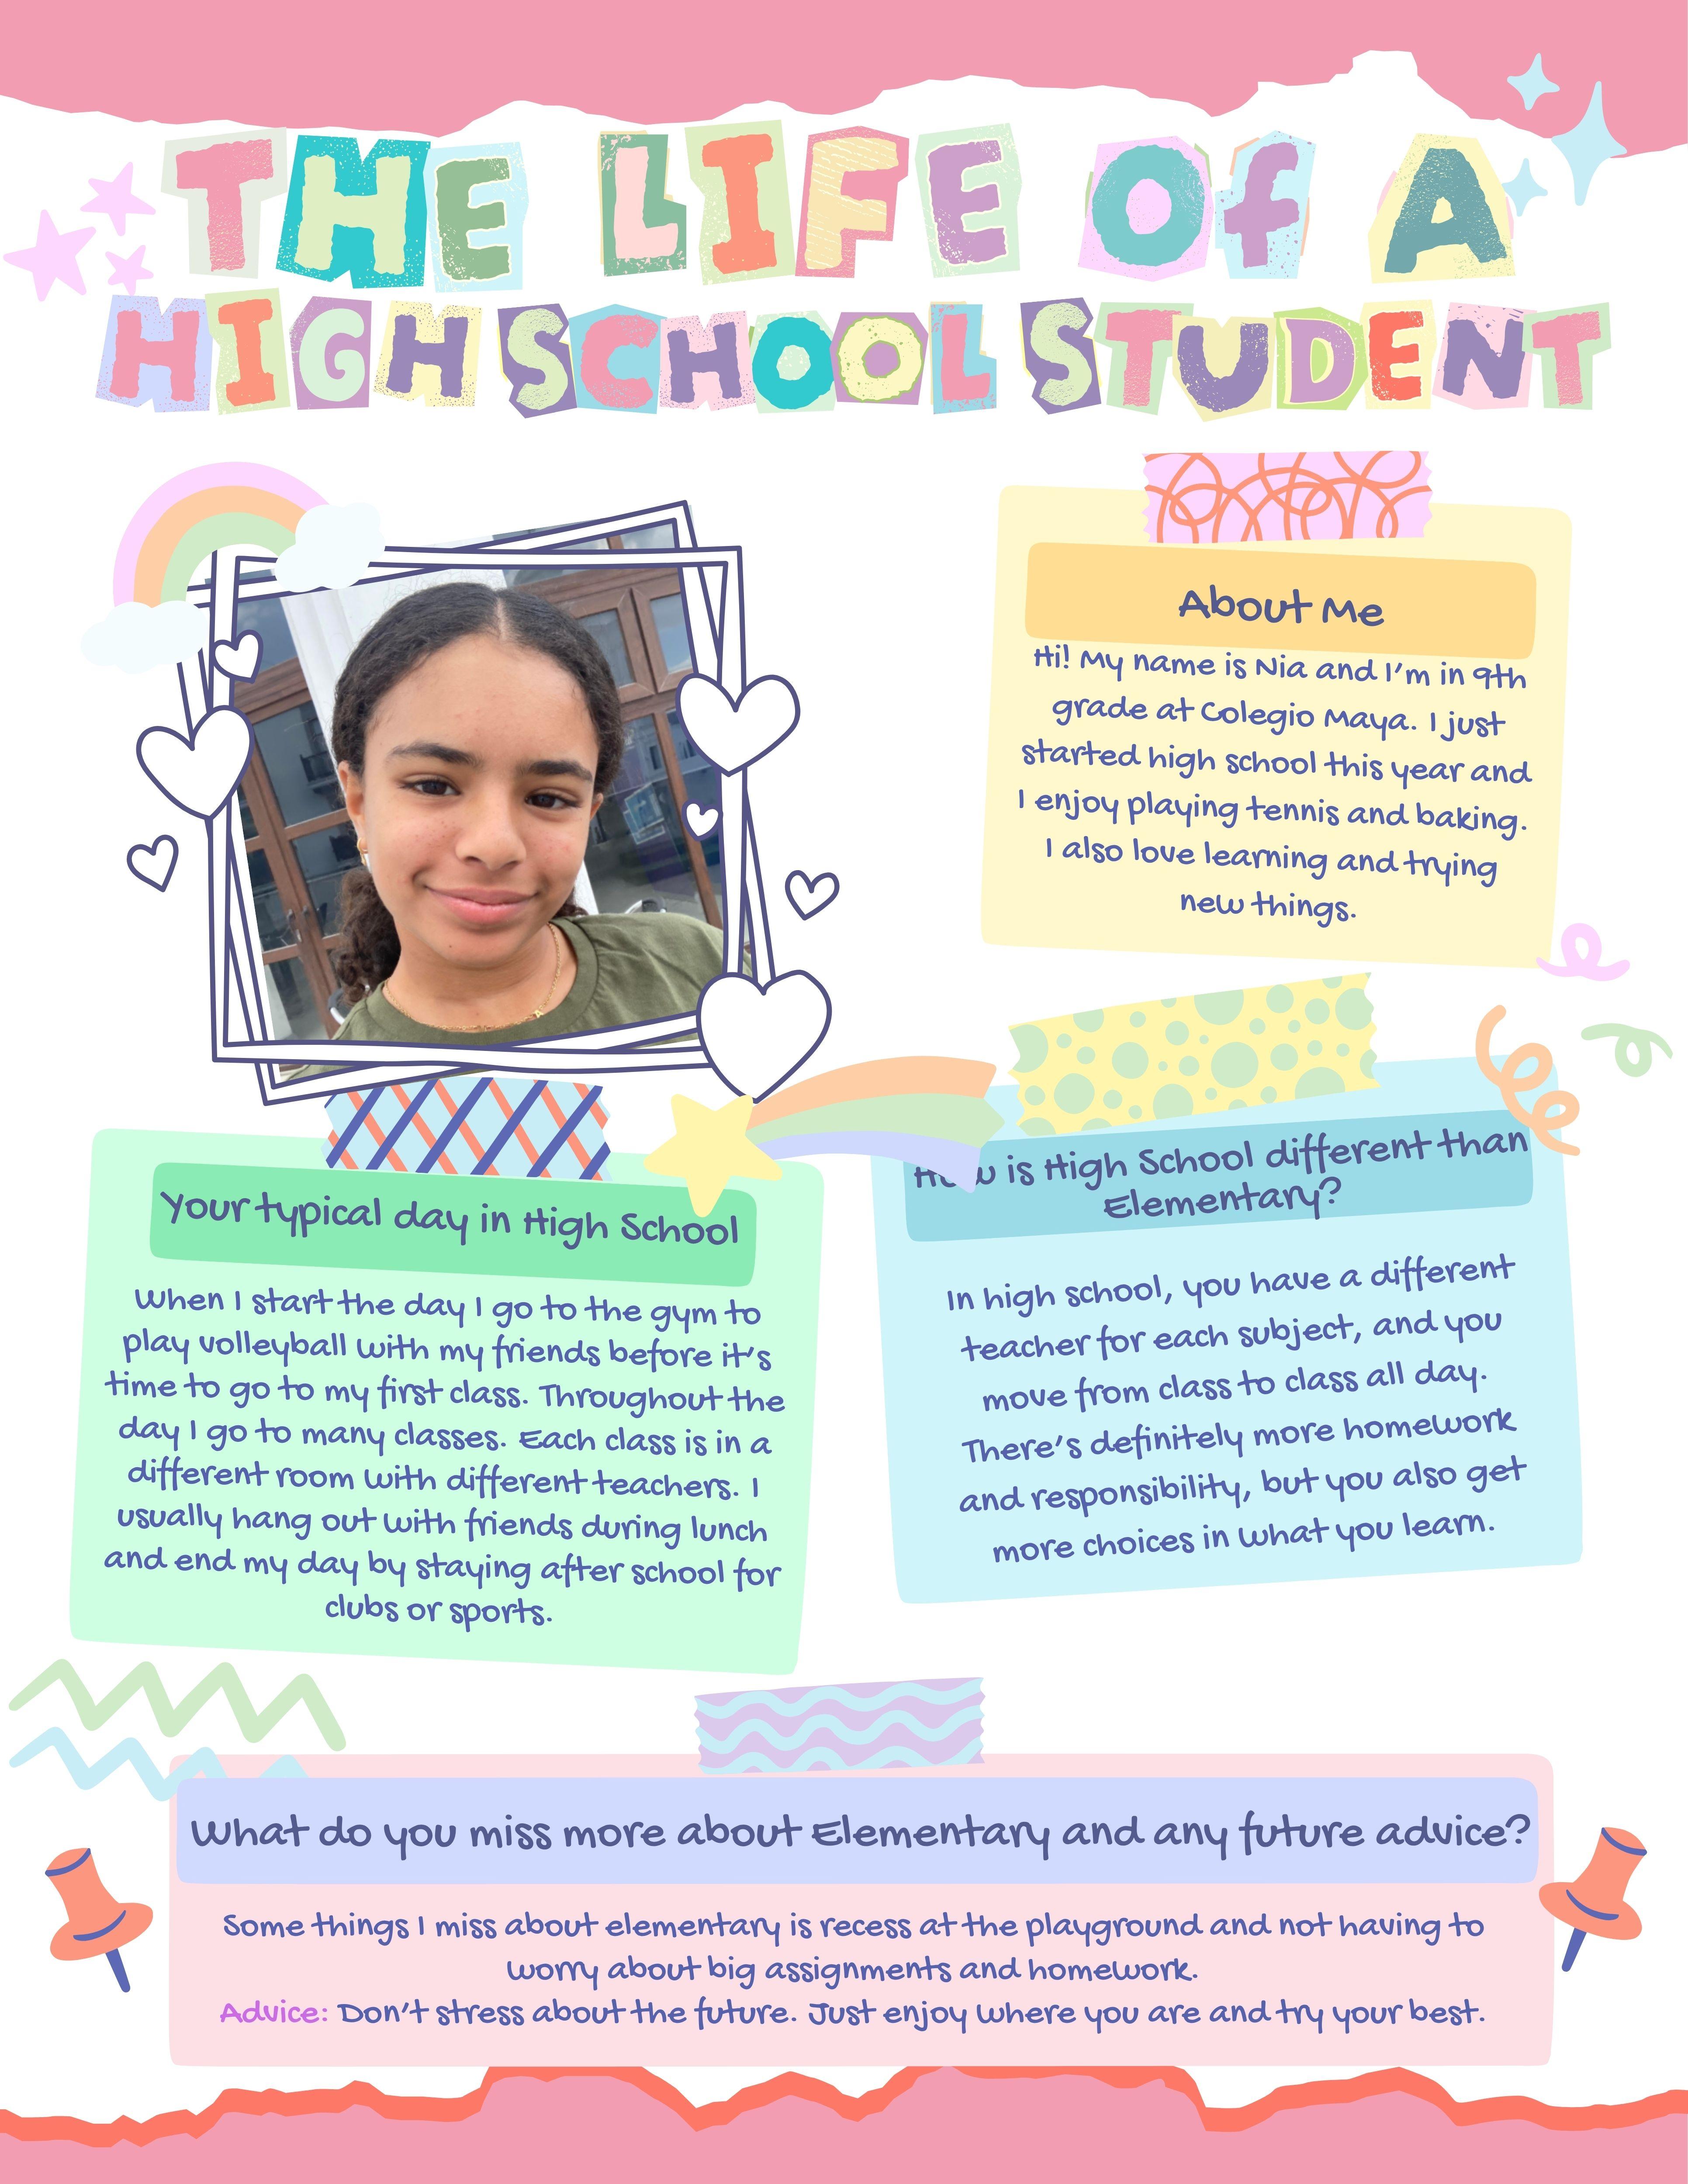 THE LIFE Of A
HIGH SCHOOL STUDENT
About Me
Hi! My name is Nia and I'm in 9th
grade at Colegio Maya. I just
started high school this year and
I enjoy playing tennis and baking.
I also love learning and trying
new things.
Your typical day in High School
When I start the day I go to the gym to
play volleyball with my friends before it's
time to go to my first class. Throughout the
day I go to many classes. Each class is in a
different room with different teachers. I
usually hang out with friends during lunch
and end my day by staying after school for
clubs or sports.
How is High School different than
Elementary?
In high school, you have a different
teacher for each subject, and you
move from class to class all day.
There's definitely more homework
and responsibility, but you also get
more choices in what you learn.
What do you miss more about Elementary and any future advice?
Some things I miss about elementary is recess at the playground and not having to
worry about big assignments and homework.
Advice: Don't stress about the future. Just enjoy where you are and try your best.